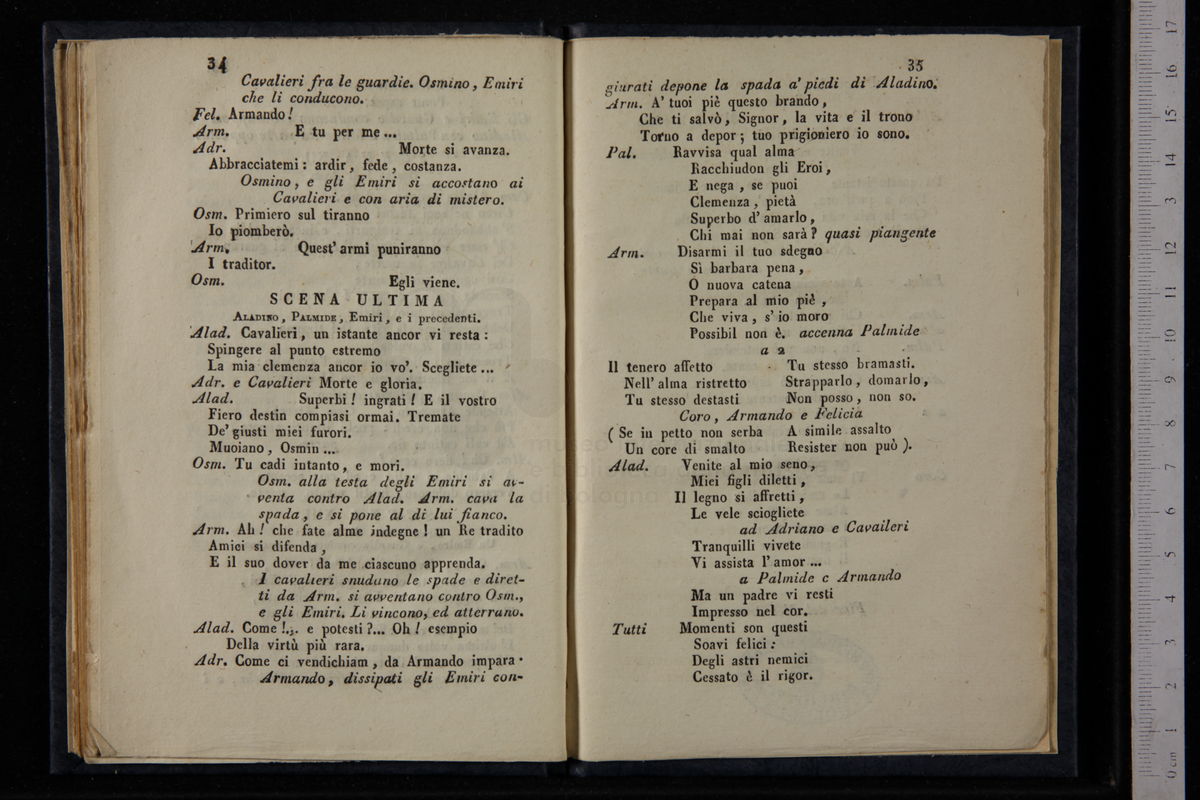 34
Cavalieri fra le guardie. Osmino, Emiri
che li conducono.
Fel. Armando!
Arm. E tu per me...
Adr. Morte si avanza.
Abbracciatemi: ardir, fede, costanza.
Osmino, e gli Emiri si accostano ai
Cavalieri e con aria di mistero.
Osm. Primiero sul tiranno
Io piomberò.
Arm. Quest' armi puniranno
I traditor.
Osm. Egli viene.
SCENA ULTIMA
ALADINO, PALMIDE, Emiri, e i precedenti.
Alad. Cavalieri, un istante ancor vi resta:
Spingere al punto estremo
La mia clemenza ancor io vo'. Scegliete...
Adr. e Cavalieri Morte e gloria.
Alad. Superbi! ingrati! E il vostro
Fiero destin compiasi ormai. Tremate
De' giusti miei furori.
Muoiano, Osmin...
Osm. Tu cadi intanto, e mori.
Osm. alla testa degli Emiri si av-
venta contro Alad. Arm. cava la
spada, e si pone al di lui fianco.
Arm. Ah! che fate alme indegne! un Re tradito
Amici si difenda,
E il suo dover da me ciascuno apprenda.
I cavalieri snudano le spade e diret-
ti da Arm. si avventano contro Osm.,
e gli Emiri. Li vincono, ed atterrano.
Alad. Come!... e potesti?... Oh! esempio
Della virtù più rara.
Adr. Come ci vendichiam, da Armando impara.
Armando, dissipati gli Emiri con-
35
giurati depone la spada a' piedi di Aladino.
Arm. A' tuoi piè questo brando,
Che ti salvò, Signor, la vita e il trono
Torno a depor; tuo prigioniero io sono.
Pal. Ravvisa qual alma
Racchiudon gli Eroi,
E nega, se puoi
Clemenza, pietà
Superbo d' amarlo,
Chi mai non sarà? quasi piangente
Arm. Disarmi il tuo sdegno
Sì barbara pena,
O nuova catena
Prepara al mio piè,
Che viva, s' io moro
Possibil non è. accenna Palmide
a 2
Il tenero affetto Tu stesso bramasti.
Nell' alma ristretto Strapparlo, domarlo,
Tu stesso destasti Non posso, non so.
Coro, Armando e Felicia
( Se in petto non serba A simile assalto
Un core di smalto Resister non può ).
Alad. Venite al mio seno,
Miei figli diletti,
Il legno si affretti,
Le vele sciogliete
ad Adriano e Cavaileri
Tranquilli vivete
Vi assista l' amor...
a Palmide c Armando
Ma un padre vi resti
Impresso nel cor.
Tutti Momenti son questi
Soavi felici:
Degli astri nemici
Cessato è il rigor.